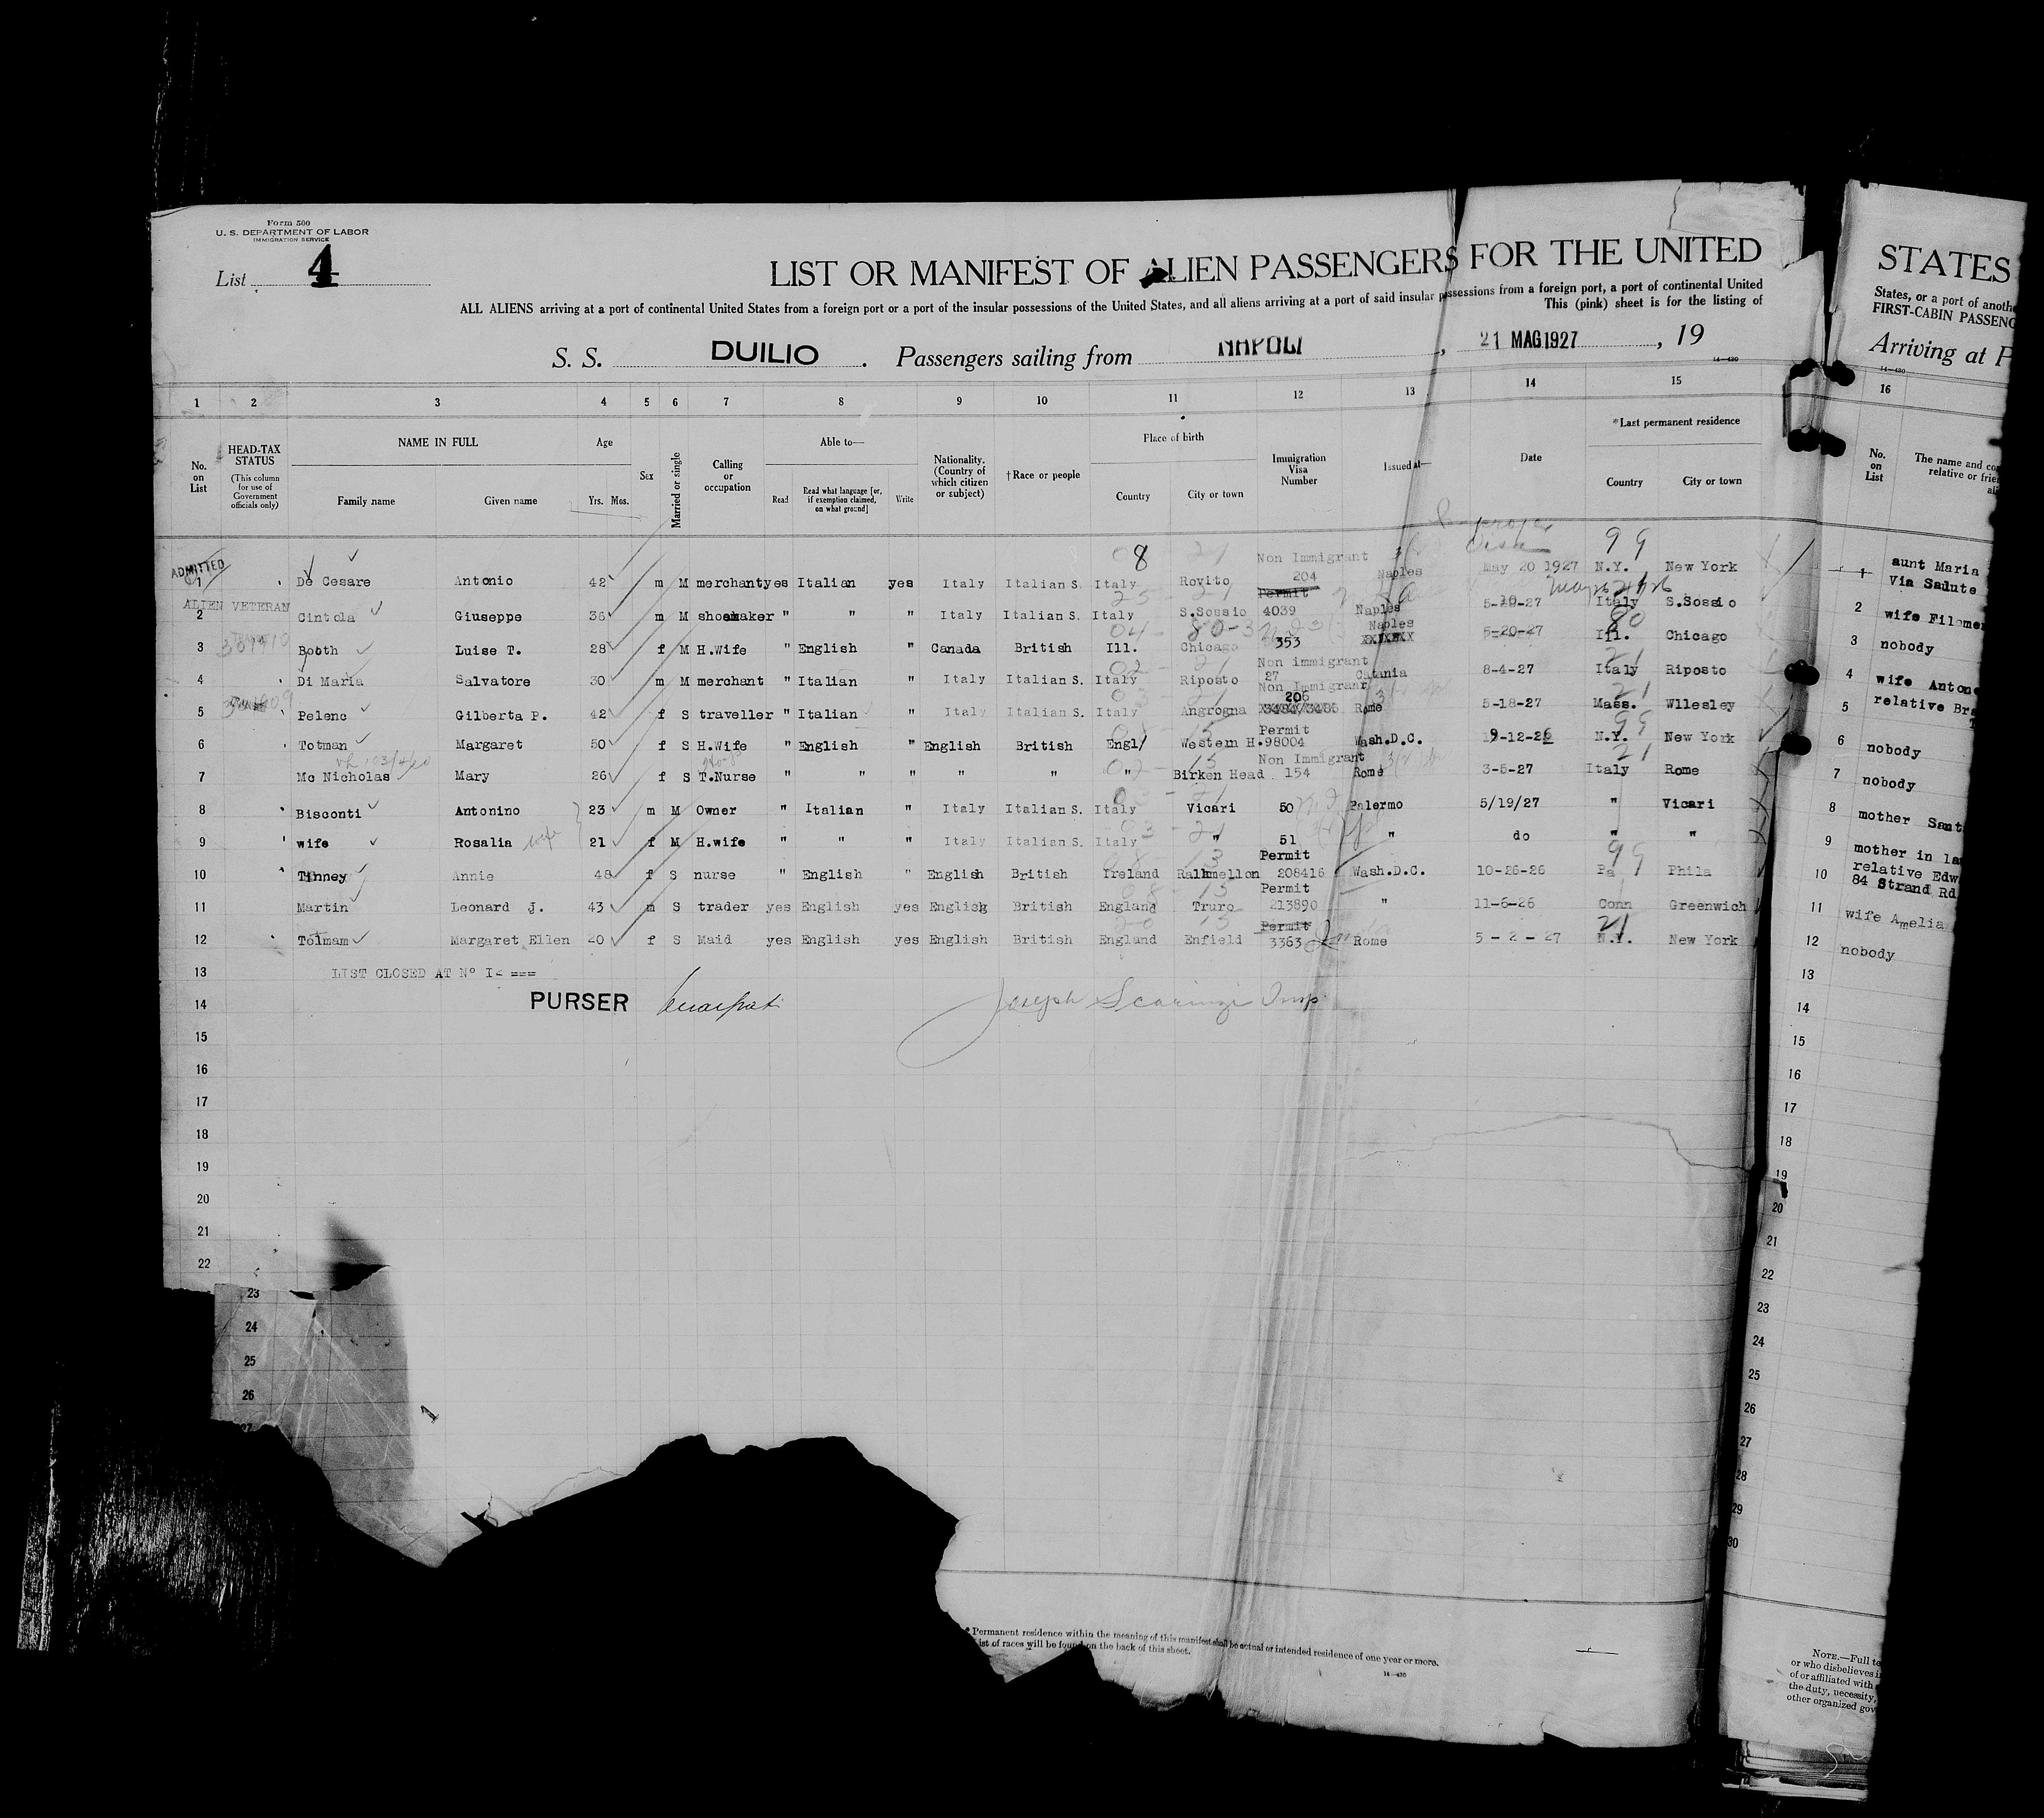 Form 500
U. S. DEPARTMENT OF LABOR
IMMIGRATION SERVICE
List 4
LIST OR MANIFEST OF ALIEN PASSENGERS FOR THE UNITED
ALL ALIENS arriving at a port of continental United States from a foreign port or a port of the insular possessions of the United States, and all aliens arriving at a port of said insular possessions from a foreign port, a port of continental United
This (pink) sheet is for the listing of
S. S. DUILIO. Passengers sailing from NAPOLI, 21 MAG.1927, 19
14—430
1 2 3 4 5 6 7 8 9 10 11 12 13 14 15
No. on List
HEAD-TAX STATUS
(This column for use of Government officials only)
NAME IN FULL
Family name Given name
Age
Yrs. Mos.
Sex
Married or single
Calling or occupation
Able to—
Read
Read what language [or, if exemption claimed, on what ground]
Write
Nationality. (Country of which citizen or subject)
†Race or people
Place of birth
Country City or town
Immigration Visa Number
Issued at—
Date
*Last permanent residence
Country City or town
8 Non Immigrant Visa 99
ADMITTED
1 De Cesare Antonio 42 m M merchant yes Italian yes Italy Italian S. Italy Rovito 204 Naples May 20 1927 N.Y. New York
Permit
ALIEN VETERAN
2 Cintola Giuseppe 36 m M shoemaker " " " Italy Italian S. Italy S.Sossio 4039 Naples 5-20-27 Italy S.Sossio
Naples 80
3 Booth Luise T. 28 f M H.Wife " English " Canada British Ill. Chicago 353 XXXXXX 5-20-27 Ill. Chicago
Non immigrant 21
4 Di Maria Salvatore 30 m M merchant " Italian " Italy Italian S. Italy Riposto 27 Catania 8-4-27 Italy Riposto
Non Immigrant 21
206
5 Pelenc Gilberta P. 42 f S traveller " Italian " Italy Italian S. Italy Angrogna 3484/3485 Rome 5-18-27 Mass. Wllesley
Permit 99
6 Totman Margaret 50 f S H.Wife " English " English British Engl/ Western H. 98004 Wash.D.C. 9-12-26 N.Y. New York
Non Immigrant 21
7 Mc Nicholas Mary 26 f S T.Nurse " " " " " " Birken Head 154 Rome 3-5-27 Italy Rome
8 Bisconti Antonino 23 m M Owner " Italian " Italy Italian S. Italy Vicari 50 Palermo 5/19/27 " Vicari
9 wife Rosalia wife 21 f M H.wife " " " Italy Italian S. Italy " 51 " do " "
Permit 99
10 Tinney Annie 48 f S nurse " English " English British Ireland Ralhmellon 208416 Wash.D.C. 10-26-26 Pa Phila
Permit
11 Martin Leonard J. 43 m S trader yes English yes English British England Truro 213890 " 11-6-26 Conn Greenwich
Permit 21
12 Tolmam Margaret Ellen 20 f S Maid yes English yes English British England Enfield 3363 Rome 5 - 2 - 27 N.Y. New York
13 LIST CLOSED AT N° I< ===
14 PURSER Joseph Scaringi Insp
15
16
17
18
19
20
21
22
23
24
25
26
27
* Permanent residence within the meaning of this manifest shall be actual or intended residence of one year or more.
ist of races will be found on the back of this sheet.
14—430
STATES
States, or a port of anoth
FIRST-CABIN PASSENG
Arriving at P
14—430
16
No. on List
The name and co
relative or frie
ali
1 aunt Maria
Via Salute
2 wife Filome
3 nobody
4 wife Anton
5 relative Br
6 nobody
7 nobody
8 mother Sant
9 mother in la
10 relative Edw
84 Strand Rd
11 wife Amelia
12 nobody
13
14
15
16
17
18
19
20
21
22
23
24
25
26
27
28
29
30
NOTE.—Full te
or who disbelieves i
of or affiliated with
the duty, necessity,
other organized gov